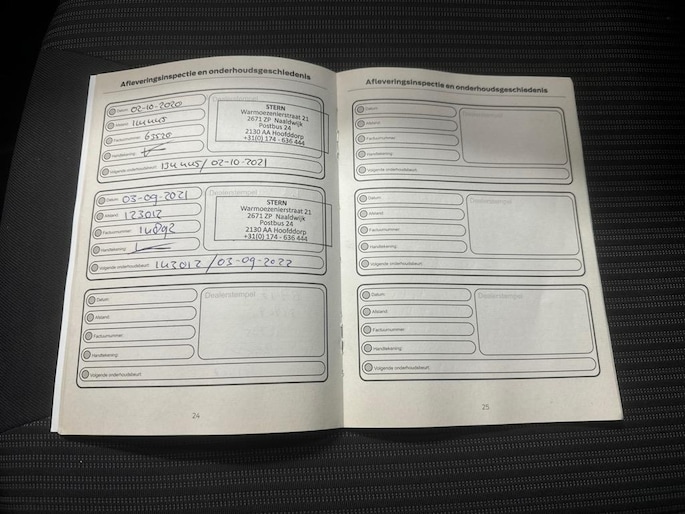 Afleveringsinspectie en onderhoudsgeschiedenis
Datum: 02-10-2020
Afstand: 114445
Factuurnummer: 63526
Handtekening:
Volgende onderhoudsbeurt: 134445 / 02-10-2021
Dealerstempel
STERN
Warmoezenierstraat 21
2671 ZP Naaldwijk
Postbus 24
2130 AA Hoofddorp
+31(0) 174 - 636 444
Datum: 03-09-2021
Afstand: 123012
Factuurnummer: 14892
Handtekening:
Volgende onderhoudsbeurt: 143012 / 03-09-2022
Dealerstempel
STERN
Warmoezenierstraat 21
2671 ZP Naaldwijk
Postbus 24
2130 AA Hoofddorp
+31(0) 174 - 636 444
Datum:
Afstand:
Factuurnummer:
Handtekening:
Volgende onderhoudsbeurt:
Dealerstempel
24
Afleveringsinspectie en onderhoudsgeschiedenis
Datum:
Afstand:
Factuurnummer:
Handtekening:
Volgende onderhoudsbeurt:
Dealerstempel
Datum:
Afstand:
Factuurnummer:
Handtekening:
Volgende onderhoudsbeurt:
Dealerstempel
Datum:
Afstand:
Factuurnummer:
Handtekening:
Volgende onderhoudsbeurt:
Dealerstempel
25